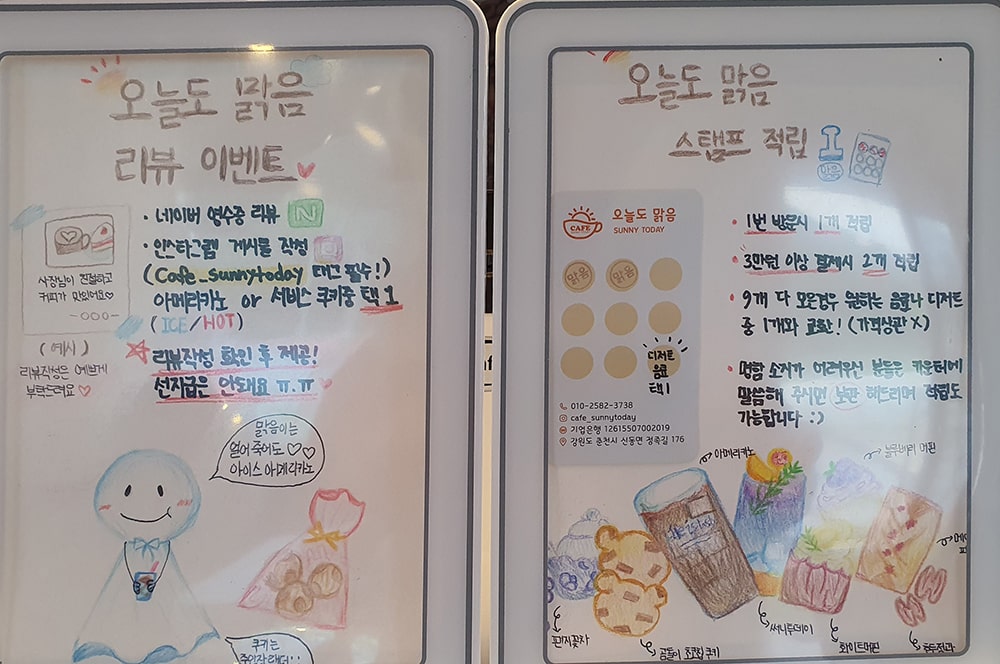 오늘도 맑음
리뷰 이벤트
· 네이버 영수증 리뷰 N
· 인스타그램 게시물 작성
(Cafe_sunnytoday 태그 필수!)
아메리카노 or 서비스 쿠키중 택1
(ICE/HOT)
리뷰작성 확인 후 제공!
선지급은 안돼요 ㅠㅠ
사장님이 친절하고
커피가 맛있어요♡
-○○○-
(예시)
리뷰작성은 예쁘게
부탁드려요♡
맑음이는
얼어 죽어도 ♡♡
아이스 아메리카노
쿠키는
오늘도 맑음
스탬프 적립
맑음
CAFE
오늘도 맑음
SUNNY TODAY
맑음 맑음
디저트
음료
택1
010-2582-3738
cafe_sunnytoday
기업은행 12615507002019
강원도 춘천시 신동면 정족길 176
• 1번 방문시 1개 적립
• 3만원 이상 결제시 2개 적립
• 9개 다 모은경우 원하는 음료나 디저트
중 1개와 교환! (가격상관 X)
• 명함 소지가 어려우신 분들은 카운터에
말씀해 주시면 보관 해드리며 적립도
가능합니다 :)
아메리카노
블루베리 머핀
곰돌이 초코칩 쿠키
써니투데이
화이트머핀
호두정과